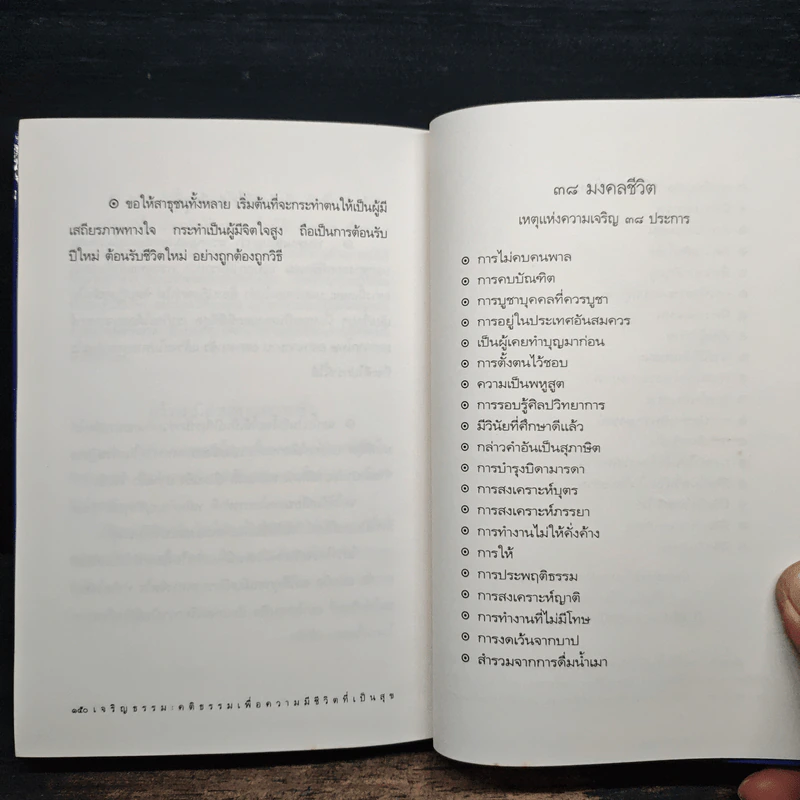 ๏ ขอให้สาธุชนทั้งหลาย เริ่มต้นที่จะกระทำตนให้เป็นผู้มี
เสถียรภาพทางใจ กระทำเป็นผู้มีจิตใจสูง ถือเป็นการต้อนรับ
ปีใหม่ ต้อนรับชีวิตใหม่ อย่างถูกต้องถูกวิธี
๑๕๐ เจริญธรรม : คติธรรมเพื่อความมีชีวิตที่เป็นสุข
๓๘ มงคลชีวิต
เหตุแห่งความเจริญ ๓๘ ประการ
๏ การไม่คบคนพาล
๏ การคบบัณฑิต
๏ การบูชาบุคคลที่ควรบูชา
๏ การอยู่ในประเทศอันสมควร
๏ เป็นผู้เคยทำบุญมาก่อน
๏ การตั้งตนไว้ชอบ
๏ ความเป็นพหูสูต
๏ การรอบรู้ศิลปวิทยาการ
๏ มีวินัยที่ศึกษาดีแล้ว
๏ กล่าวคำอันเป็นสุภาษิต
๏ การบำรุงบิดามารดา
๏ การสงเคราะห์บุตร
๏ การสงเคราะห์ภรรยา
๏ การทำงานไม่ให้คั่งค้าง
๏ การให้
๏ การประพฤติธรรม
๏ การสงเคราะห์ญาติ
๏ การทำงานที่ไม่มีโทษ
๏ การงดเว้นจากบาป
๏ สำรวมจากการดื่มน้ำเมา